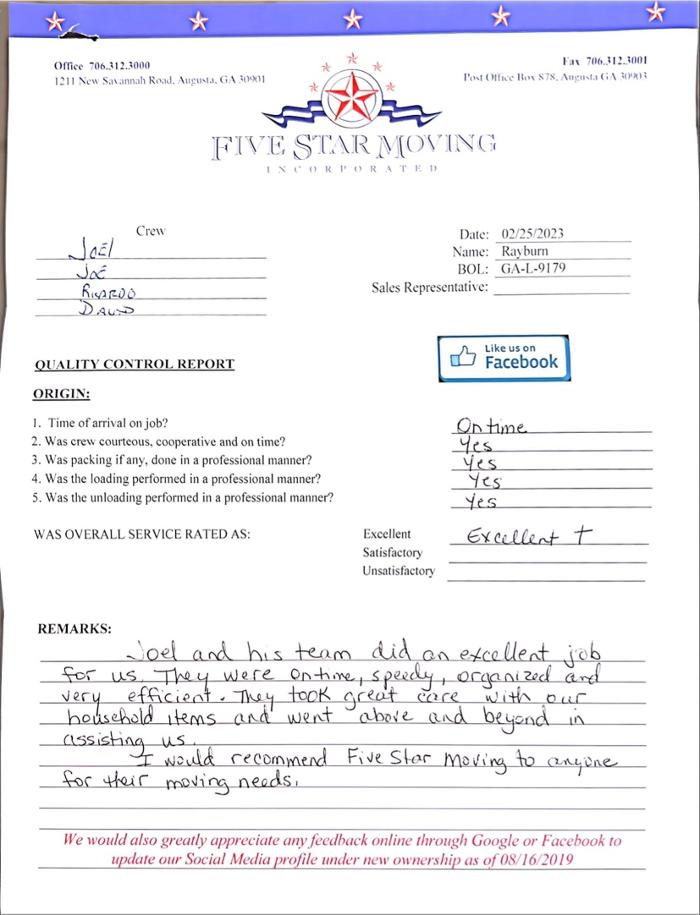 Office 706.312.3000
1211 New Savannah Road, Augusta, GA 30901
Fax 706.312.3001
Post Office Box 878, Augusta GA 30903
FIVE STAR MOVING
INCORPORATED
Crew
Joel
Joe
Ricardo
David
Date: 02/25/2023
Name: Rayburn
BOL: GA-L-9179
Sales Representative:
Like us on
Facebook
QUALITY CONTROL REPORT
ORIGIN:
1. Time of arrival on job? On time
2. Was crew courteous, cooperative and on time? Yes
3. Was packing if any, done in a professional manner? Yes
4. Was the loading performed in a professional manner? Yes
5. Was the unloading performed in a professional manner? Yes
WAS OVERALL SERVICE RATED AS: Excellent Excellent +
Satisfactory
Unsatisfactory
REMARKS:
Joel and his team did an excellent job
for us. They were ontime, speedy, organized and
very efficient. They took great care with our
household items and went above and beyond in
assisting us.
I would recommend Five Star Moving to anyone
for their moving needs.
We would also greatly appreciate any feedback online through Google or Facebook to
update our Social Media profile under new ownership as of 08/16/2019